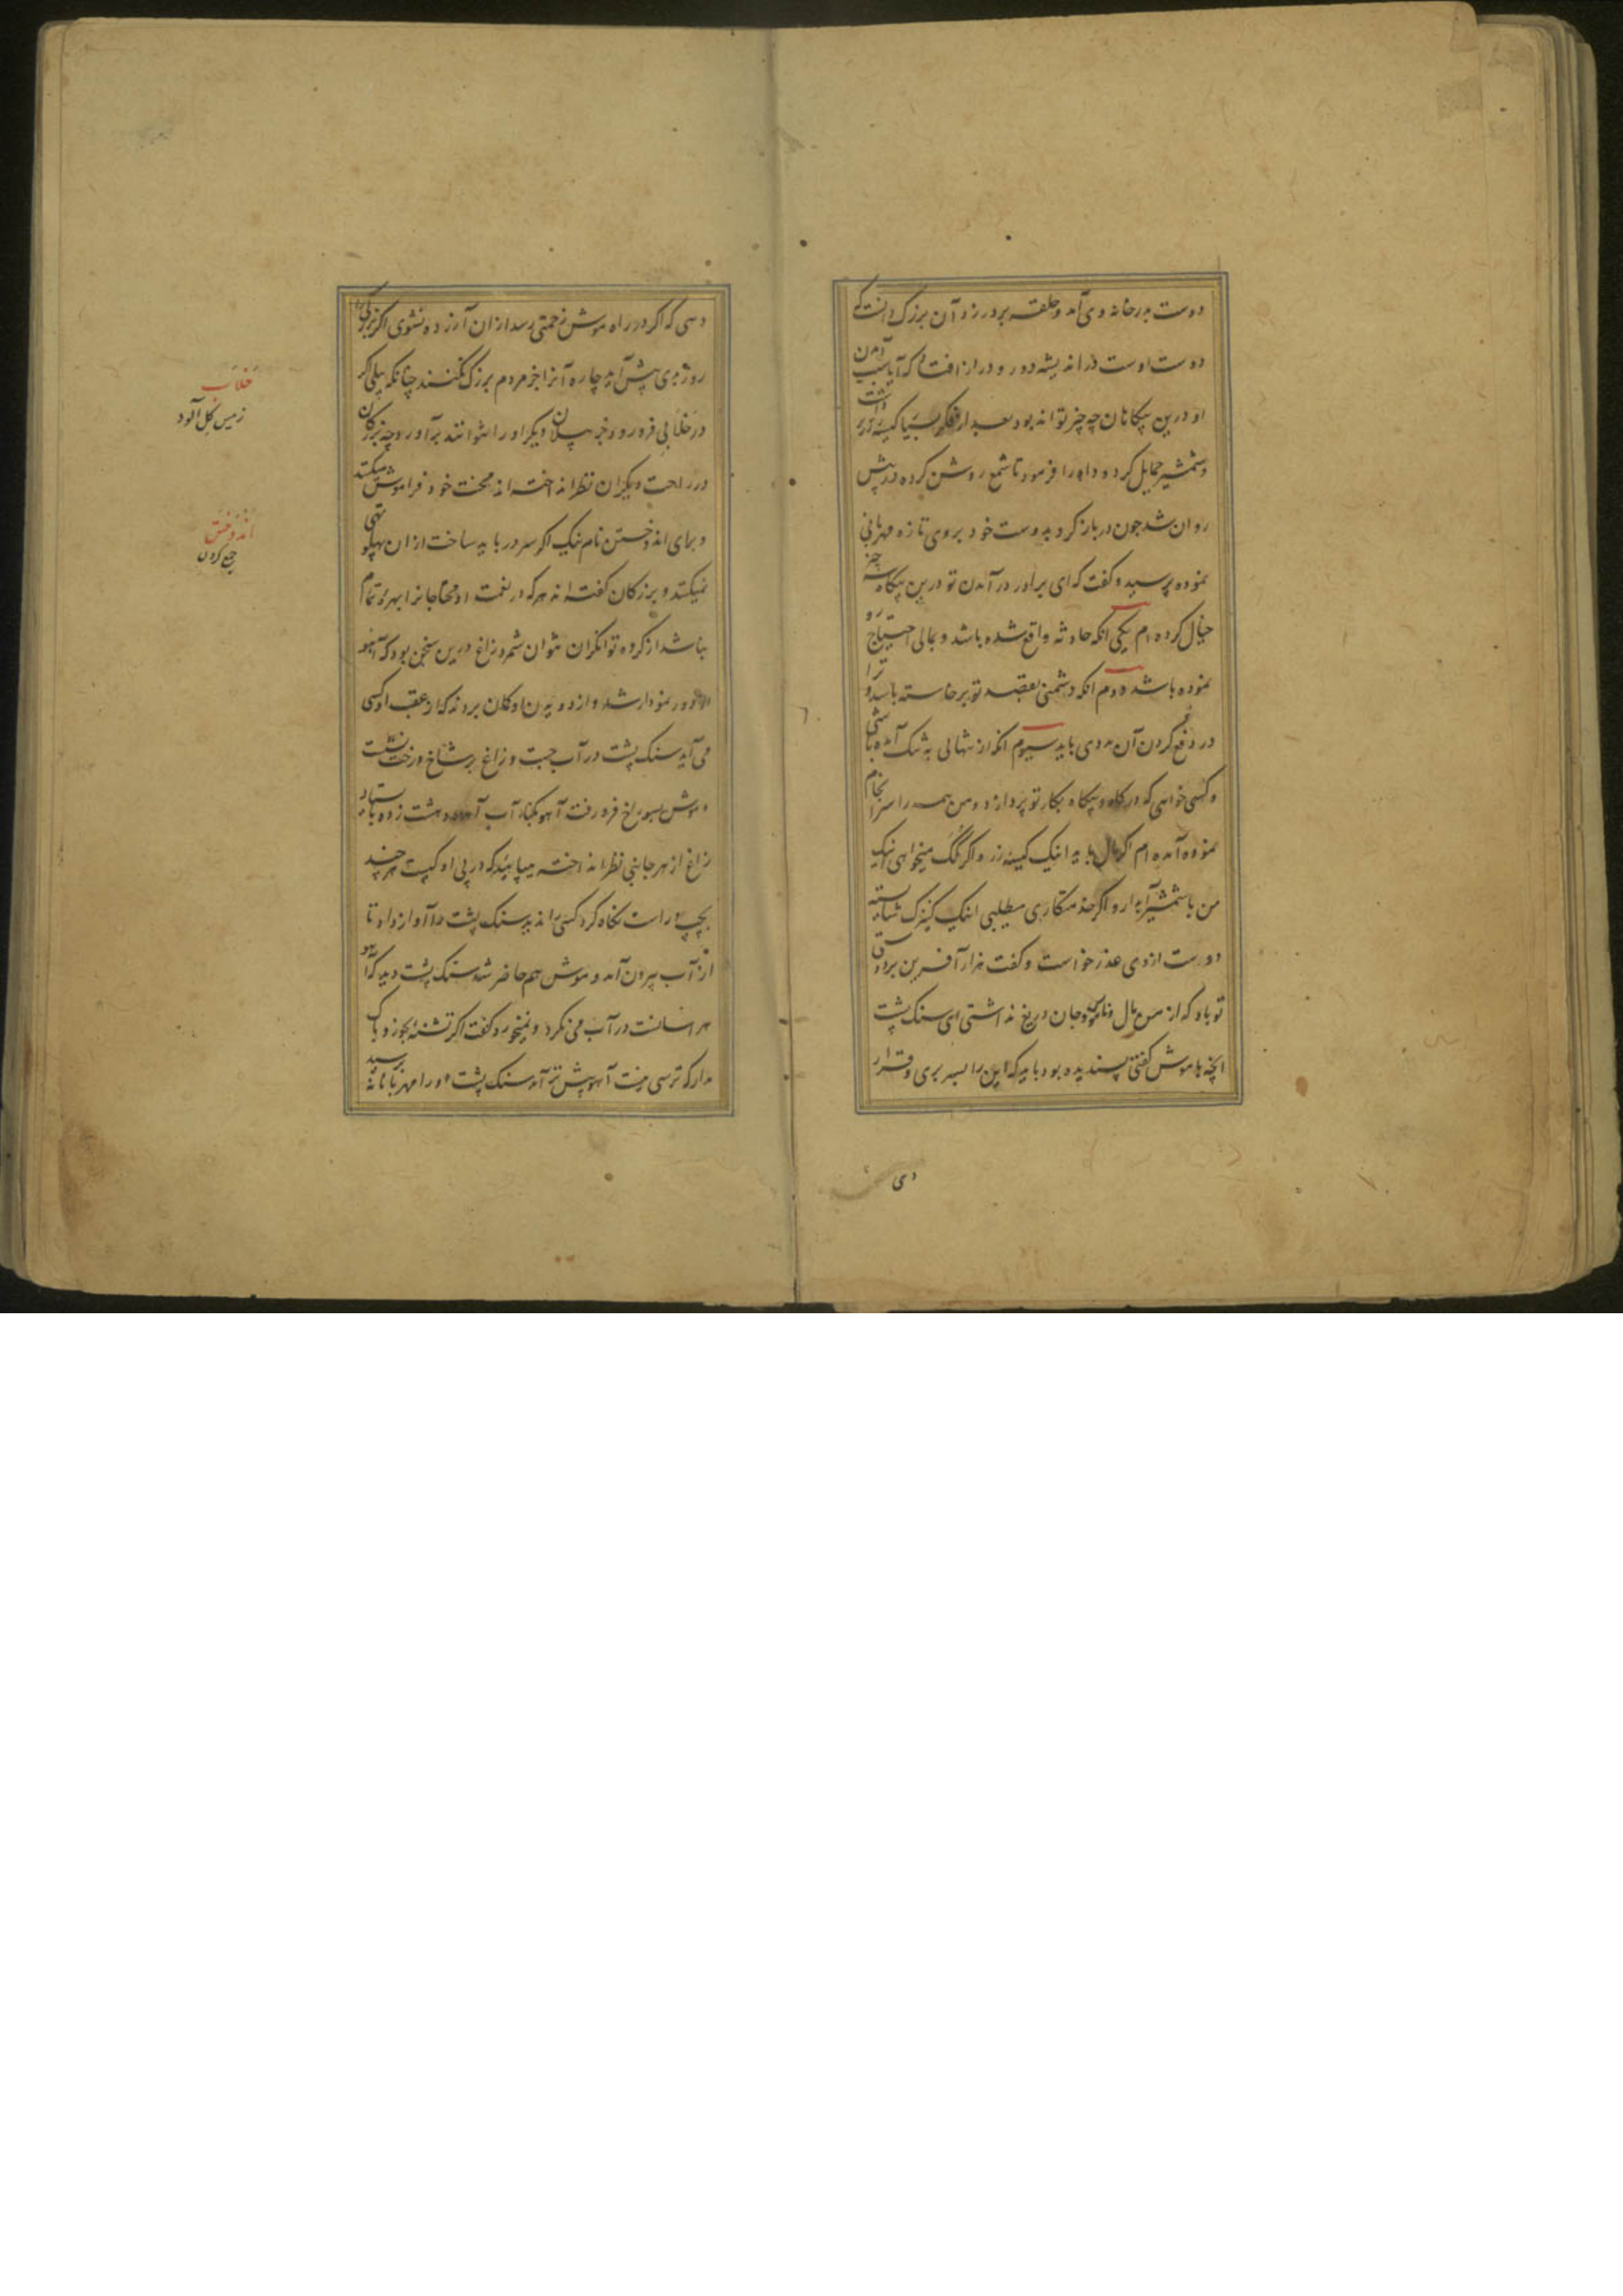 دوست بدر خانه وی آمد و حلقه بر در زد آن بزرگ دانست که
دوست اوست در اندیشه دور و دراز افتاد که آیا سبب آمدن
او درین بیگاهان چه چیز تواند بود بعد از فکر بسیار کیسه زر برداشت
و شمشیر حمایل کرد و داه را فرمود تا شمع روشن کرده در پیش
روان شد چون در باز کرد بدوست خود بروی تازه مهربانی
نموده پرسید و گفت که ای برادر در آمدن تو درین بیگاه سه چیز
خیال کرده ام یکی آنکه حادثه واقع شده باشد و بمالی احتیاج رو
نموده باشد دوم آنکه دشمنی بقصد تو برخاسته باشد و ترا
در دفع کردن آن مددی باید سیوم آنکه از تنهائی به تنگ آمده باشی
و کسی خواهی که در گاه و بیگاه بکار تو پردازد و من همه را سرانجام
نموده آمده ام اگر مال باید اینک کیسه زر و اگر کمک میخواهی اینک
من با شمشیر آبدار و اگر خدمتگاری میطلبی اینک کنیزک شایسته
دوست ازوی عذر خواست و گفت هزار آفرین بر دوستی
تو باد که از من مال و ناموس و جان دریغ نداشتی ای سنگ پشت
آنچه با موش گفتی پسندیده بود باید که این را بسر بری و قرار
دی
دهی که اگر در راه موش زحمتی رسد از ان آزرده نشوی اگر بزرگی را
روز بدی پیش آید چاره آنرا جز مردم بزرگ نکنند چنانکه پیلی که اگر
در خلابی فرو رود جز پیلان دیگر او را نتوانند برآورد و چه بزرگان
در راحت دیگران نظر انداخته اند محنت خود فراموش میکنند
و برای اندوختن نام نیک اگر سر در باید ساخت از ان پهلو تهی
نمیکنند و بزرگان گفته اند هر که در نعمت او محتاجانرا بهره تمام
نباشد از گروه توانگران نتوان شمرد زاغ درین سخن بود که آهو
از دور نمودار شد و از دویدن او گمان بردند که از عقب او کسی
می آید سنگ پشت در آب جست و زاغ بر شاخ درخت نشست
و موش بسوراخ فرو رفت آهو بکنار آب آمده دهشت زده باستاد
زاغ از هر جانبی نظر انداخته میپائید که در پی او کیست هر چند
بچپ و راست نگاه کرد کسی را ندید سنگ پشت را آواز داد تا
از آب بیرون آمد و موش هم حاضر شد سنگ پشت دید که آهو
هراسانست در آب می نگرد و نمیخورد گفت اگر تشنه بخور و باک
مدار که ترسی نیست آهو پیش تر آمد سنگ پشت او را مهربانانه پرسید
خلاب
زمین گل آلود
اندوختن
جمع کردن